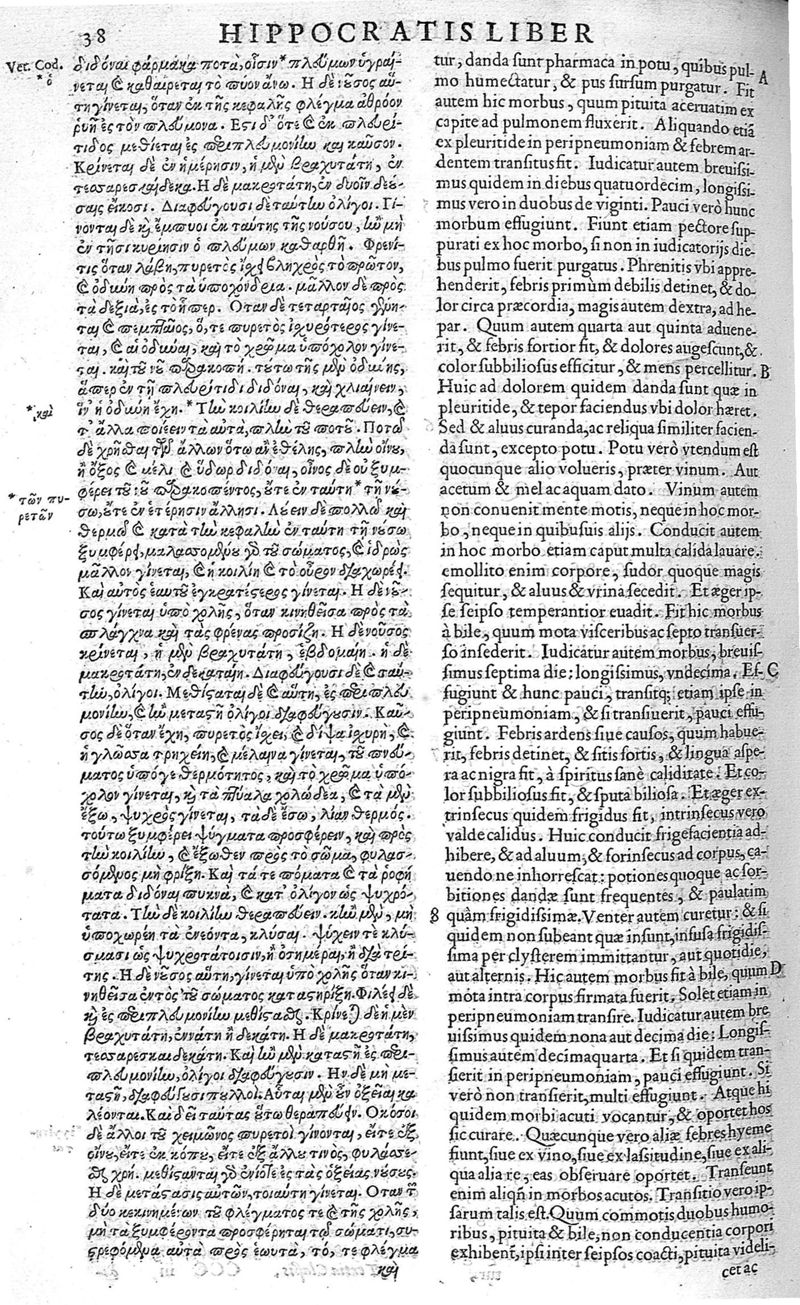 38
HIPPOCRATIS LIBER
Vet. Cod.
* ὁ
διδόναι φάρμακα ποτὰ, οἷσιν * πλεύμων ὑγραί-
νεται καὶ καθαίρεται τὸ πύον ἄνω. Ἡ δὲ νοῦσος αὕ-
τη γίνεται, ὅταν ἐκ τῆς κεφαλῆς φλέγμα ἀθρόον
ῥυῇ ἐς τὸν πλεύμονα. Ἔστι δ' ὅτε καὶ ἐκ πλευρί-
τιδος μεθίσταται ἐς περιπλευμονίην καὶ καῦσον.
Κρίνεται δὲ ἐν ἡμέρῃσιν, ἡ μὲν βραχυτάτη, ἐν
τεσσαρεσκαίδεκα. Ἡ δὲ μακροτάτη, ἐν δυοῖν δεού-
σαις εἴκοσι. Διαφεύγουσι δὲ ταύτην ὀλίγοι. Γί-
νονται δὲ καὶ ἔμπυοι ἐκ ταύτης τῆς νούσου, ἢν μὴ
ἐν τῇσι κυρίῃσιν ὁ πλεύμων καθαρθῇ. Φρενῖ-
τις ὅταν λάβῃ, πυρετὸς ἴσχει βληχρὸς τὸ πρῶτον,
καὶ ὀδύνη πρὸς τὰ ὑποχόνδρια. μᾶλλον δὲ πρὸς
τὰ δεξιὰ, ἐς τὸ ἧπαρ. Ὅταν δὲ τεταρταῖος γένη-
ται καὶ πεμπταῖος, ὅ, τε πυρετὸς ἰσχυρότερος γίνε-
ται, καὶ αἱ ὀδύναι, καὶ τὸ χρῶμα ὑπόχολον γίνε-
ται. καὶ τοῦ νοῦ παρακοπή. τούτῳ τῆς μὲν ὀδύνης,
ἅπερ ἐν τῇ πλευρίτιδι διδόναι, καὶ χλιαίνειν,
* καὶ
ἵν' ἡ ὀδύνη ἔχῃ. * Τὴν κοιλίην δὲ θεραπεύειν, καὶ
τ' ἄλλα ποιέειν ταὐτὰ, πλὴν τοῦ ποτοῦ. Ποτῷ
δὲ χρῆσθαι τῶν ἄλλων ὅτῳ ἂν ἐθέλῃς, πλὴν οἴνου,
ἢ ὄξος καὶ μέλι καὶ ὕδωρ διδόναι, οἶνος δὲ οὐ ξυμ-
* τῶν πυ-
ρετῶν
φέρει τοῦ νοῦ παρακοπέντος, οὔτε ἐν ταύτῃ * τῇ νού-
σῳ, οὔτε ἐν ἑτέρῃσιν ἄλλῃσι. Λούειν δὲ πολλῷ καὶ
θερμῷ καὶ κατὰ τὴν κεφαλὴν ἐν ταύτῃ τῇ νούσῳ
ξυμφέρει, μαλασσομένου γὰρ τοῦ σώματος, καὶ ἱδρὼς
μᾶλλον γίνεται, καὶ ἡ κοιλίη καὶ τὸ οὖρον διαχωρέει.
Καὶ αὐτὸς ἑαυτοῦ ἐγκρατέστερος γίνεται. Ἡ δὲ νοῦ-
σος γίνεται ὑπὸ χολῆς, ὅταν κινηθεῖσα πρὸς τὰ
σπλάγχνα καὶ τὰς φρένας προσίζῃ. Ἡ δὲ νοῦσος
κρίνεται, ἡ μὲν βραχυτάτη, ἑβδομαίη. ἡ δὲ
μακροτάτη, ἑνδεκαταίη. Διαφεύγουσι δὲ καὶ ταύ-
την, ὀλίγοι. Μεθίσταται δὲ καὶ αὕτη, ἐς περιπλευ-
μονίην, καὶ ἢν μεταστῇ ὀλίγοι διαφεύγουσιν. Καῦ-
σος δὲ ὅταν ἔχῃ, πυρετὸς ἴσχει, καὶ δίψα ἰσχυρὴ, καὶ
ἡ γλῶσσα τρηχείη, καὶ μέλαινα γίνεται, τοῦ πνεύ-
ματος ὑπόγε θερμότητος, καὶ τὸ χρῶμα ὑπό-
χολον γίνεται, καὶ τὰ πτύαλα χολώδεα, καὶ τὰ μὲν
ἔξω, ψυχρὸς γίνεται, τὰ δὲ ἔσω, λίαν θερμός.
τούτῳ ξυμφέρει ψύγματα προσφέρειν, καὶ πρὸς
τὴν κοιλίην, καὶ ἔξωθεν πρὸς τὸ σῶμα, φυλασ-
σόμενος μὴ φρίξῃ. Καὶ τά τε πόματα καὶ τὰ ῥοφή
ματα διδόναι πυκνὰ, καὶ κατ' ὀλίγον ὡς ψυχρό-
τατα. Τὴν δὲ κοιλίην θεραπεύειν. κἢν μὲν, μὴ
ὑποχωρέῃ τὰ ἐνεόντα, κλύσαι. ψύχειν τε κλύ-
σμασι ὡς ψυχροτάτοισιν, ἢ ὁσημέραι, ἢ διὰ τρί-
της. Ἡ δὲ νοῦσος αὕτη, γίνεται ὑπὸ χολῆς ὅταν κι-
νηθεῖσα ἐντὸς τοῦ σώματος καταστηρίξῃ. Φιλέει δὲ
καὶ ἐς περιπλευμονίην μεθίστασθαι. Κρίνεται δὲ ἡ μὲν
βραχυτάτη, ἐννάτῃ ἢ δεκάτῃ. Ἡ δὲ μακροτάτη,
τεσσαρεσκαιδεκάτῃ. Καὶ ἢν μὲν καταστῇ ἐς περι-
πλευμονίην, ὀλίγοι διαφεύγουσιν. Ἢν δὲ μὴ με-
ταστῇ, διαφεύγουσι πολλοί. Αὗται μὲν οὖν ὀξεῖαι κα-
λέονται. Καὶ δεῖ ταύτας οὕτω θεραπεύειν. Ὁκόσοι
δὲ ἄλλοι τοῦ χειμῶνος πυρετοὶ γίνονται, εἴτε ἐξ
οἴνου, εἴτε ἐκ κόπου, εἴτε ἐξ ἄλλου τινὸς, φυλάσσε-
σθαι χρή. μεθίστανται γὰρ ἐνίοτε ἐς τὰς ὀξείας νούσους.
Ἡ δὲ μετάστασις αὐτῶν, τοιαύτη γίνεται. Ὅταν τῶν
δύο κεκινημένων τοῦ φλέγματός τε καὶ τῆς χολῆς,
μὴ τὰ ξυμφέροντα προσφέρηται τῷ σώματι, συ-
στρεφόμενα αὐτὰ πρὸς ἑωυτὰ, τό, τε φλέγμα
καὶ
tur, danda sunt pharmaca in potu, quibus pul-
A
mo humectatur, & pus sursum purgatur. Fit
autem hic morbus, quum pituita aceruatim ex
capite ad pulmonem fluxerit. Aliquando etiã
ex pleuritide in peripneumoniam & febrem ar-
dentem transitus fit. Iudicatur autem breuissi-
mus quidem in diebus quatuordecim, longissi-
mus vero in duobus de viginti. Pauci verò hunc
morbum effugiunt. Fiunt etiam pectore sup-
purati ex hoc morbo, si non in iudicatorijs die-
bus pulmo fuerit purgatus. Phrenitis vbi appre-
henderit, febris primùm debilis detinet, & do-
lor circa præcordia, magis autem dextra, ad he-
par. Quum autem quarta aut quinta aduene-
rit, & febris fortior fit, & dolores augescunt, &
color subbiliosus efficitur, & mens percellitur.
B
Huic ad dolorem quidem danda sunt quæ in
pleuritide, & tepor faciendus vbi dolor hæret.
Sed & aluus curanda, ac reliqua similiter facien-
da sunt, excepto potu. Potu verò vtendum est
quocunque alio volueris, præter vinum. Aut
acetum & mel ac aquam dato. Vinum autem
non conuenit mente motis, neque in hoc mor-
bo, neque in quibusuis alijs. Conducit autem
in hoc morbo etiam caput multa calida lauare.
emollito enim corpore, sudor quoque magis
sequitur, & aluus & vrina secedit. Et æger ip-
se seipso temperantior euadit. Fit hic morbus
à bile, quum mota visceribus ac septo transuer-
so insederit. Iudicatur autem morbus, breuis-
simus septima die; longissimus, vndecima. Ef-
C
fugiunt & hunc pauci, transitq; etiam ipse in
peripneumoniam, & si transiuerit, pauci effu-
giunt. Febris ardens siue causos, quum habue-
rit, febris detinet, & sitis fortis, & lingua aspe-
ra ac nigra fit, à spiritus sanè caliditate: Et co-
lor subbiliosus fit, & sputa biliosa. Et æger ex-
trinsecus quidem frigidus fit, intrinsecus vero
valde calidus. Huic conducit frigefacientia ad-
hibere, & ad aluum, & forinsecus ad corpus, ca-
uendo ne inhorrescat: potiones quoque ac sor-
bitiones dandæ sunt frequentes, & paulatim
quàm frigidissimæ. Venter autem curetur: & si
quidem non subeant quæ insunt, infusa frigidis-
sima per clysterem immittantur, aut quotidie,
aut alternis. Hic autem morbus fit à bile, quum
D
mota intra corpus firmata fuerit. Solet etiam in
peripneumoniam transire. Iudicatur autem bre
uissimus quidem nona aut decima die: Longis-
simus autem decimaquarta. Et si quidem tran-
sierit in peripneumoniam, pauci effugiunt. Si
verò non transierit, multi effugiunt. Atque hi
quidem morbi acuti vocantur, & oportet hos
sic curare. Quæcunque vero aliæ febres hyeme
fiunt, siue ex vino, siue ex lassitudine, siue ex ali-
qua alia re, eas obseruare oportet. Transeunt
enim aliqñ in morbos acutos. Transitio vero ip-
sarum talis est. Quum commotis duobus humo-
ribus, pituita & bile, non conducentia corpori
exhibent, ipsi inter seipsos coacti, pituita videli-
cet ac